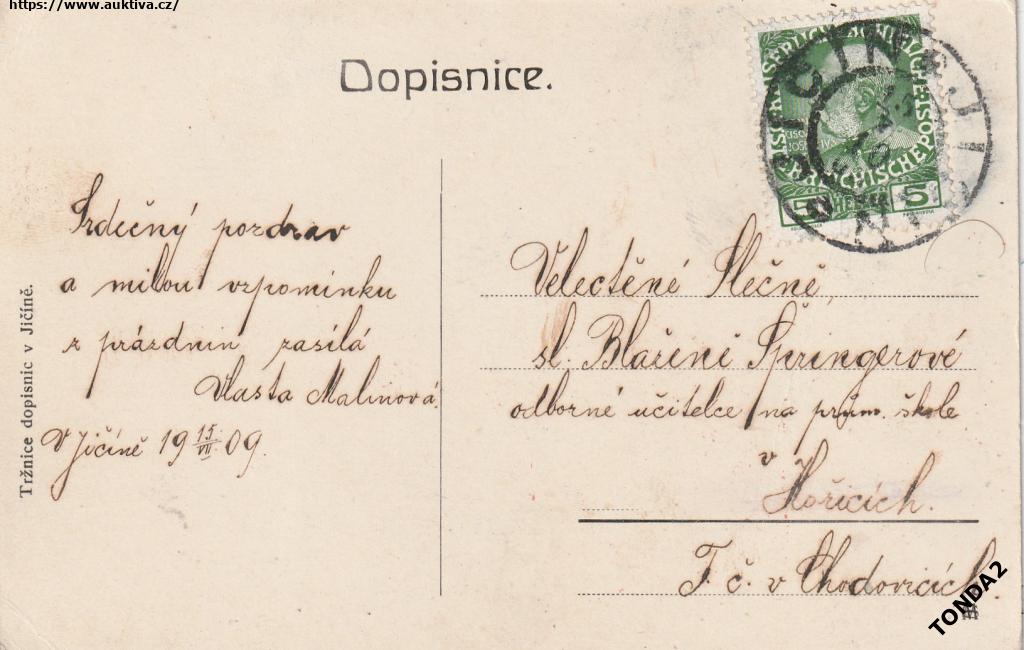 https://www.auktiva.cz/
Dopisnice.
JIČÍN
5
5
Srdečný pozdrav
a milou vzpomínku
z prázdnin zasílá
Vlasta Malinová.
V Jičíně 19 15/VII 09.
Tržnice dopisnic v Jičíně.
Velectěné Slečně,
sl. Blaženě Špringerové
odborné učitelce na prům. škole
v
Hořicích.
T. č. v Chodovicích.
TONDA2